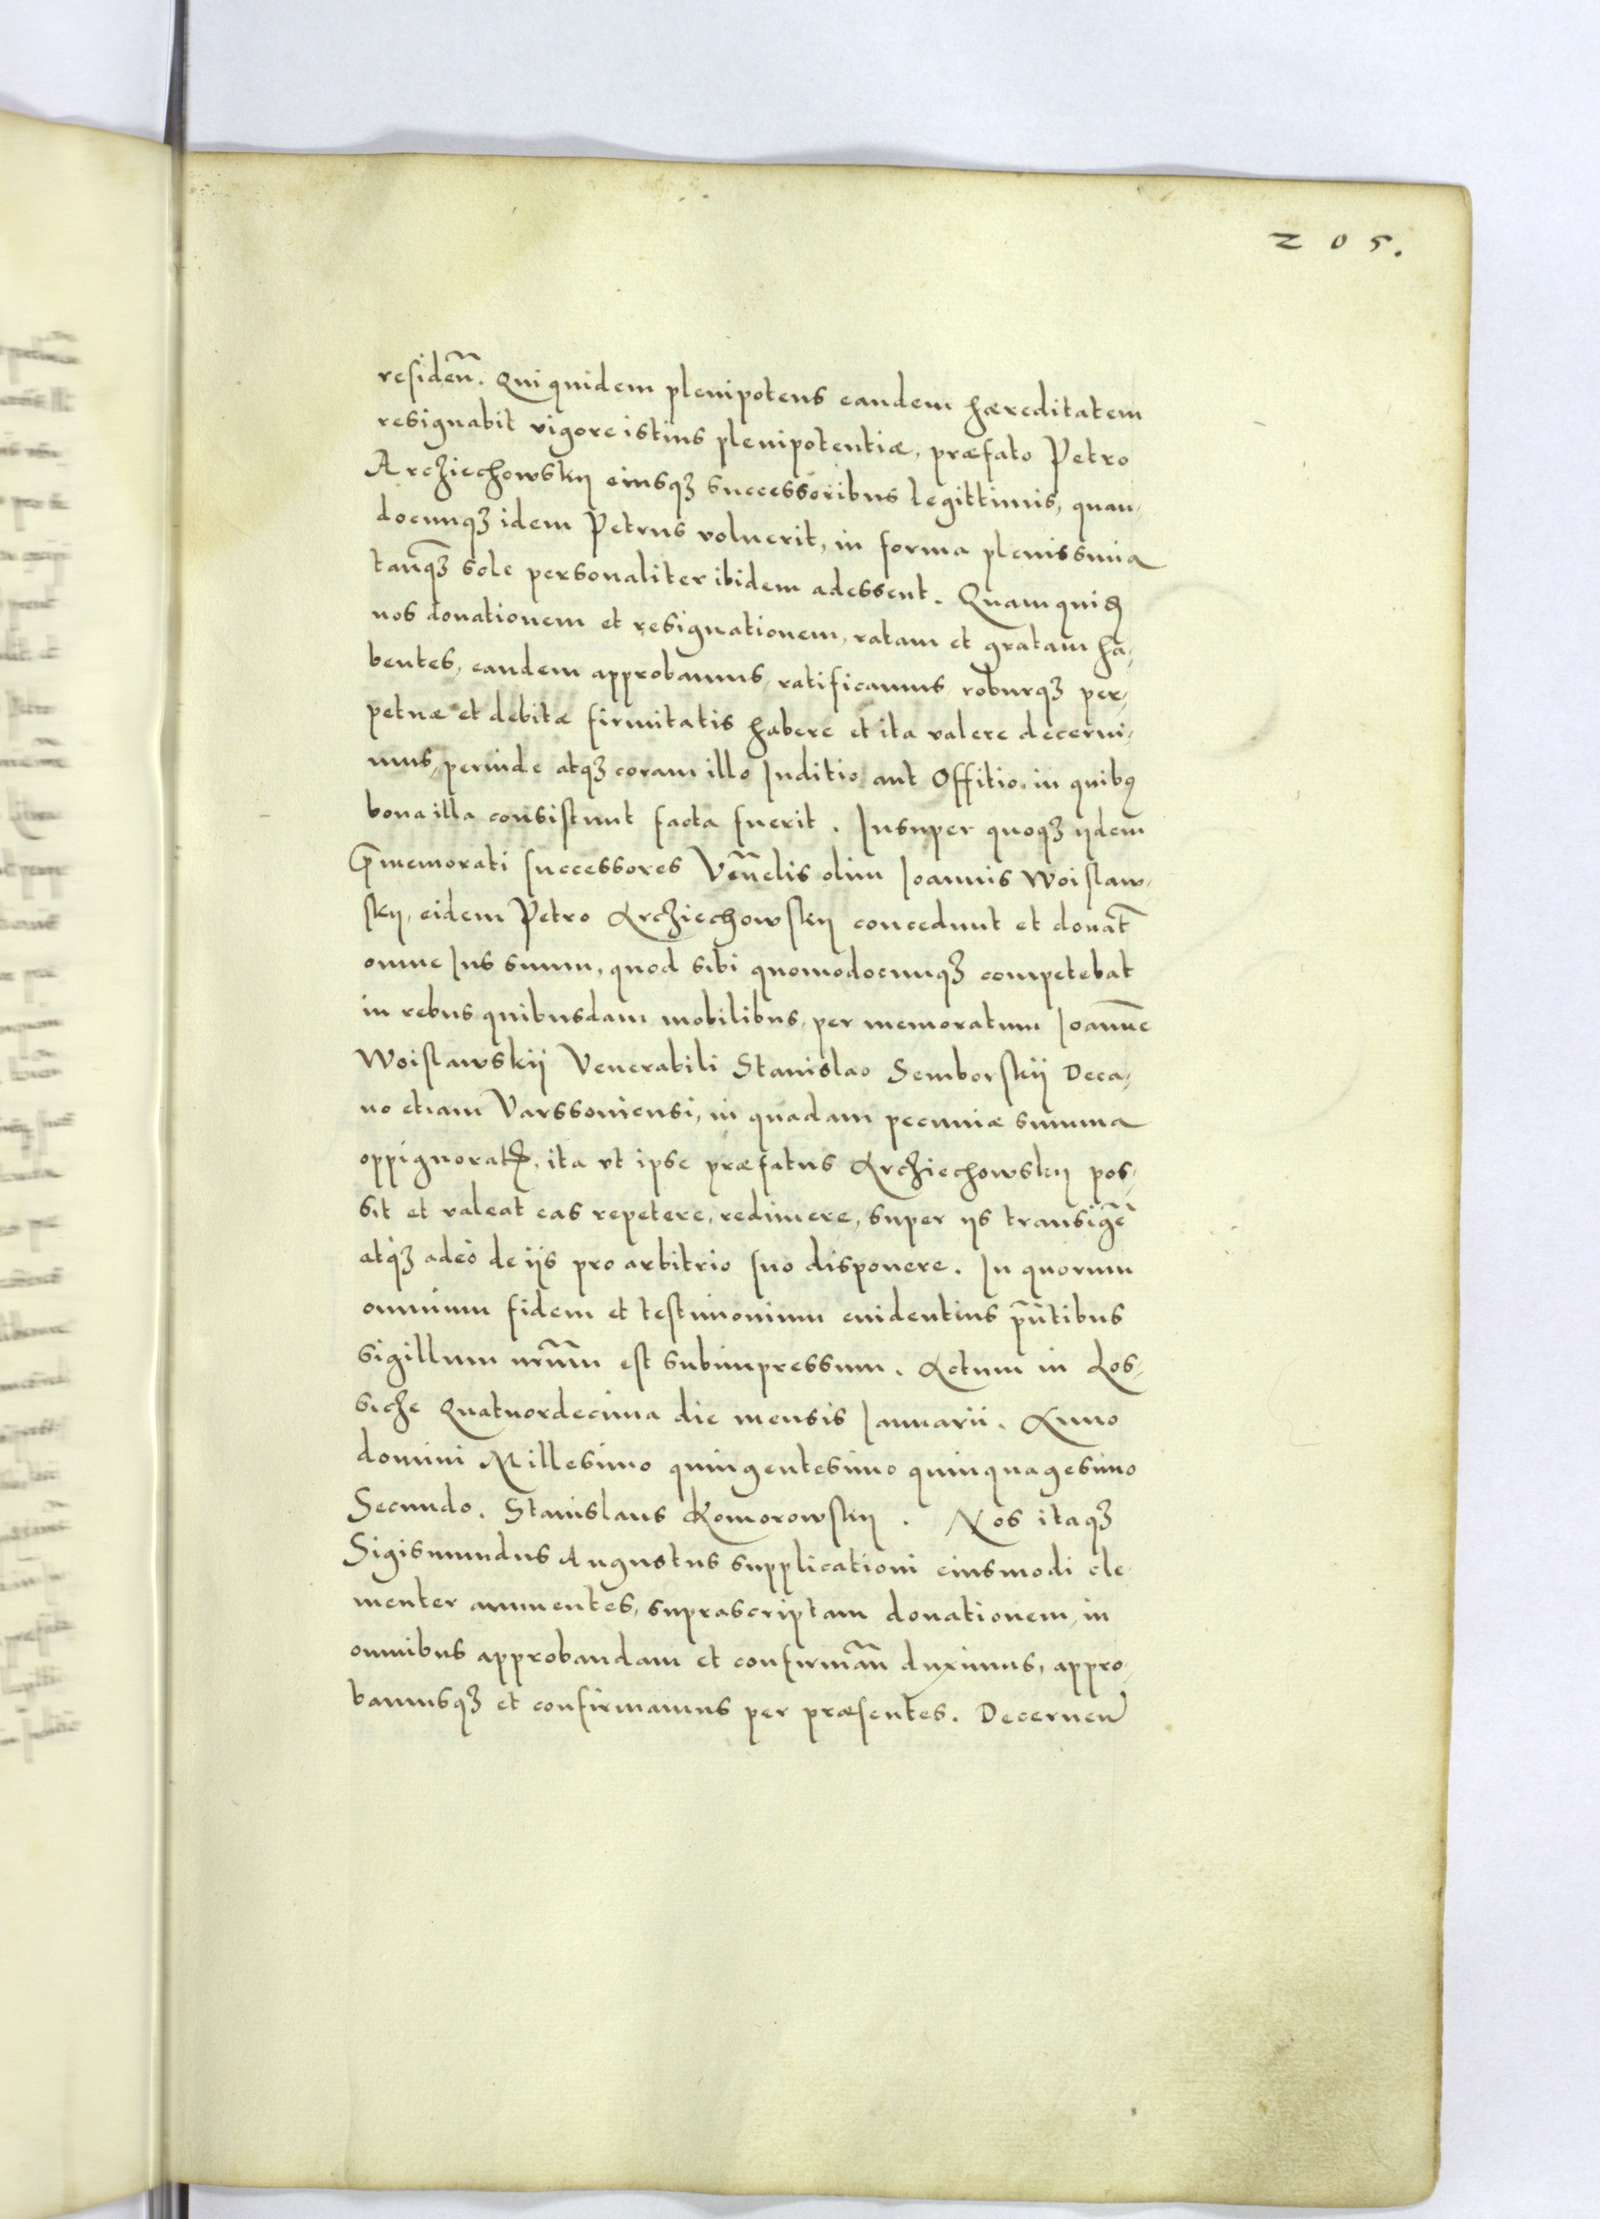 205.
residen̄. Qui quidem plenipotens eandem hæreditatem
resignabit vigore istius plenipotentiæ, præfato Petro
Archiechowsky eiusqꝫ successoribus legittimis, quan-
docunqꝫ idem Petrus voluerit, in forma plenissima
tanqꝫ sole personaliter ibidem adessent. Quam quidē
nos donationem et resignationem, ratam et gratam ha-
bentes, eandem approbamus, ratificamus, roburqꝫ per-
petuæ et debitæ firmitatis habere et ita valere decerni-
mus, perinde atqꝫ coram illo Iuditio aut Offitio, in quibus
bona illa consistunt facta fuerit. Insuper quoqꝫ ijdem
Pr̄memorati successores Vēn̄elis olim Joannis Woislaw-
sky, eidem Petro Archiechowsky concedunt et donāt
omne Ius suum, quod sibi quomodocunqꝫ competebat
in rebus quibusdam mobilibus, per memoratum Joannē
Woislawskij Venerabili Stanislao Semborskij Deca-
no etiam Varssoniensi, in quadam pecuniæ summa
oppignoratꝭ, ita vt ipse præfatus Archiechowsky pos-
sit et valeat eas repetere, redimere, super ijs transigēr
atqꝫ adeò de ijs pro arbitrio suo disponere. In quorum
omnium fidem et testimonium euidentius pn̄tibus
sigillum nr̄um est subimpressum. Actum in Los-
siche Quatuordecima die mensis Januarii. Anno
domini Millesimo quingentesimo quinquagesimo
Secundo. Stanislaus Komorowsky. Nos itaqꝫ
Sigismundus Augustus supplicationi eiusmodi cle-
menter annuentes, suprascriptam donationem, in
omnibus approbandam et confirmān duximus, appro-
bamusqꝫ et confirmamus per præsentes. Decernen